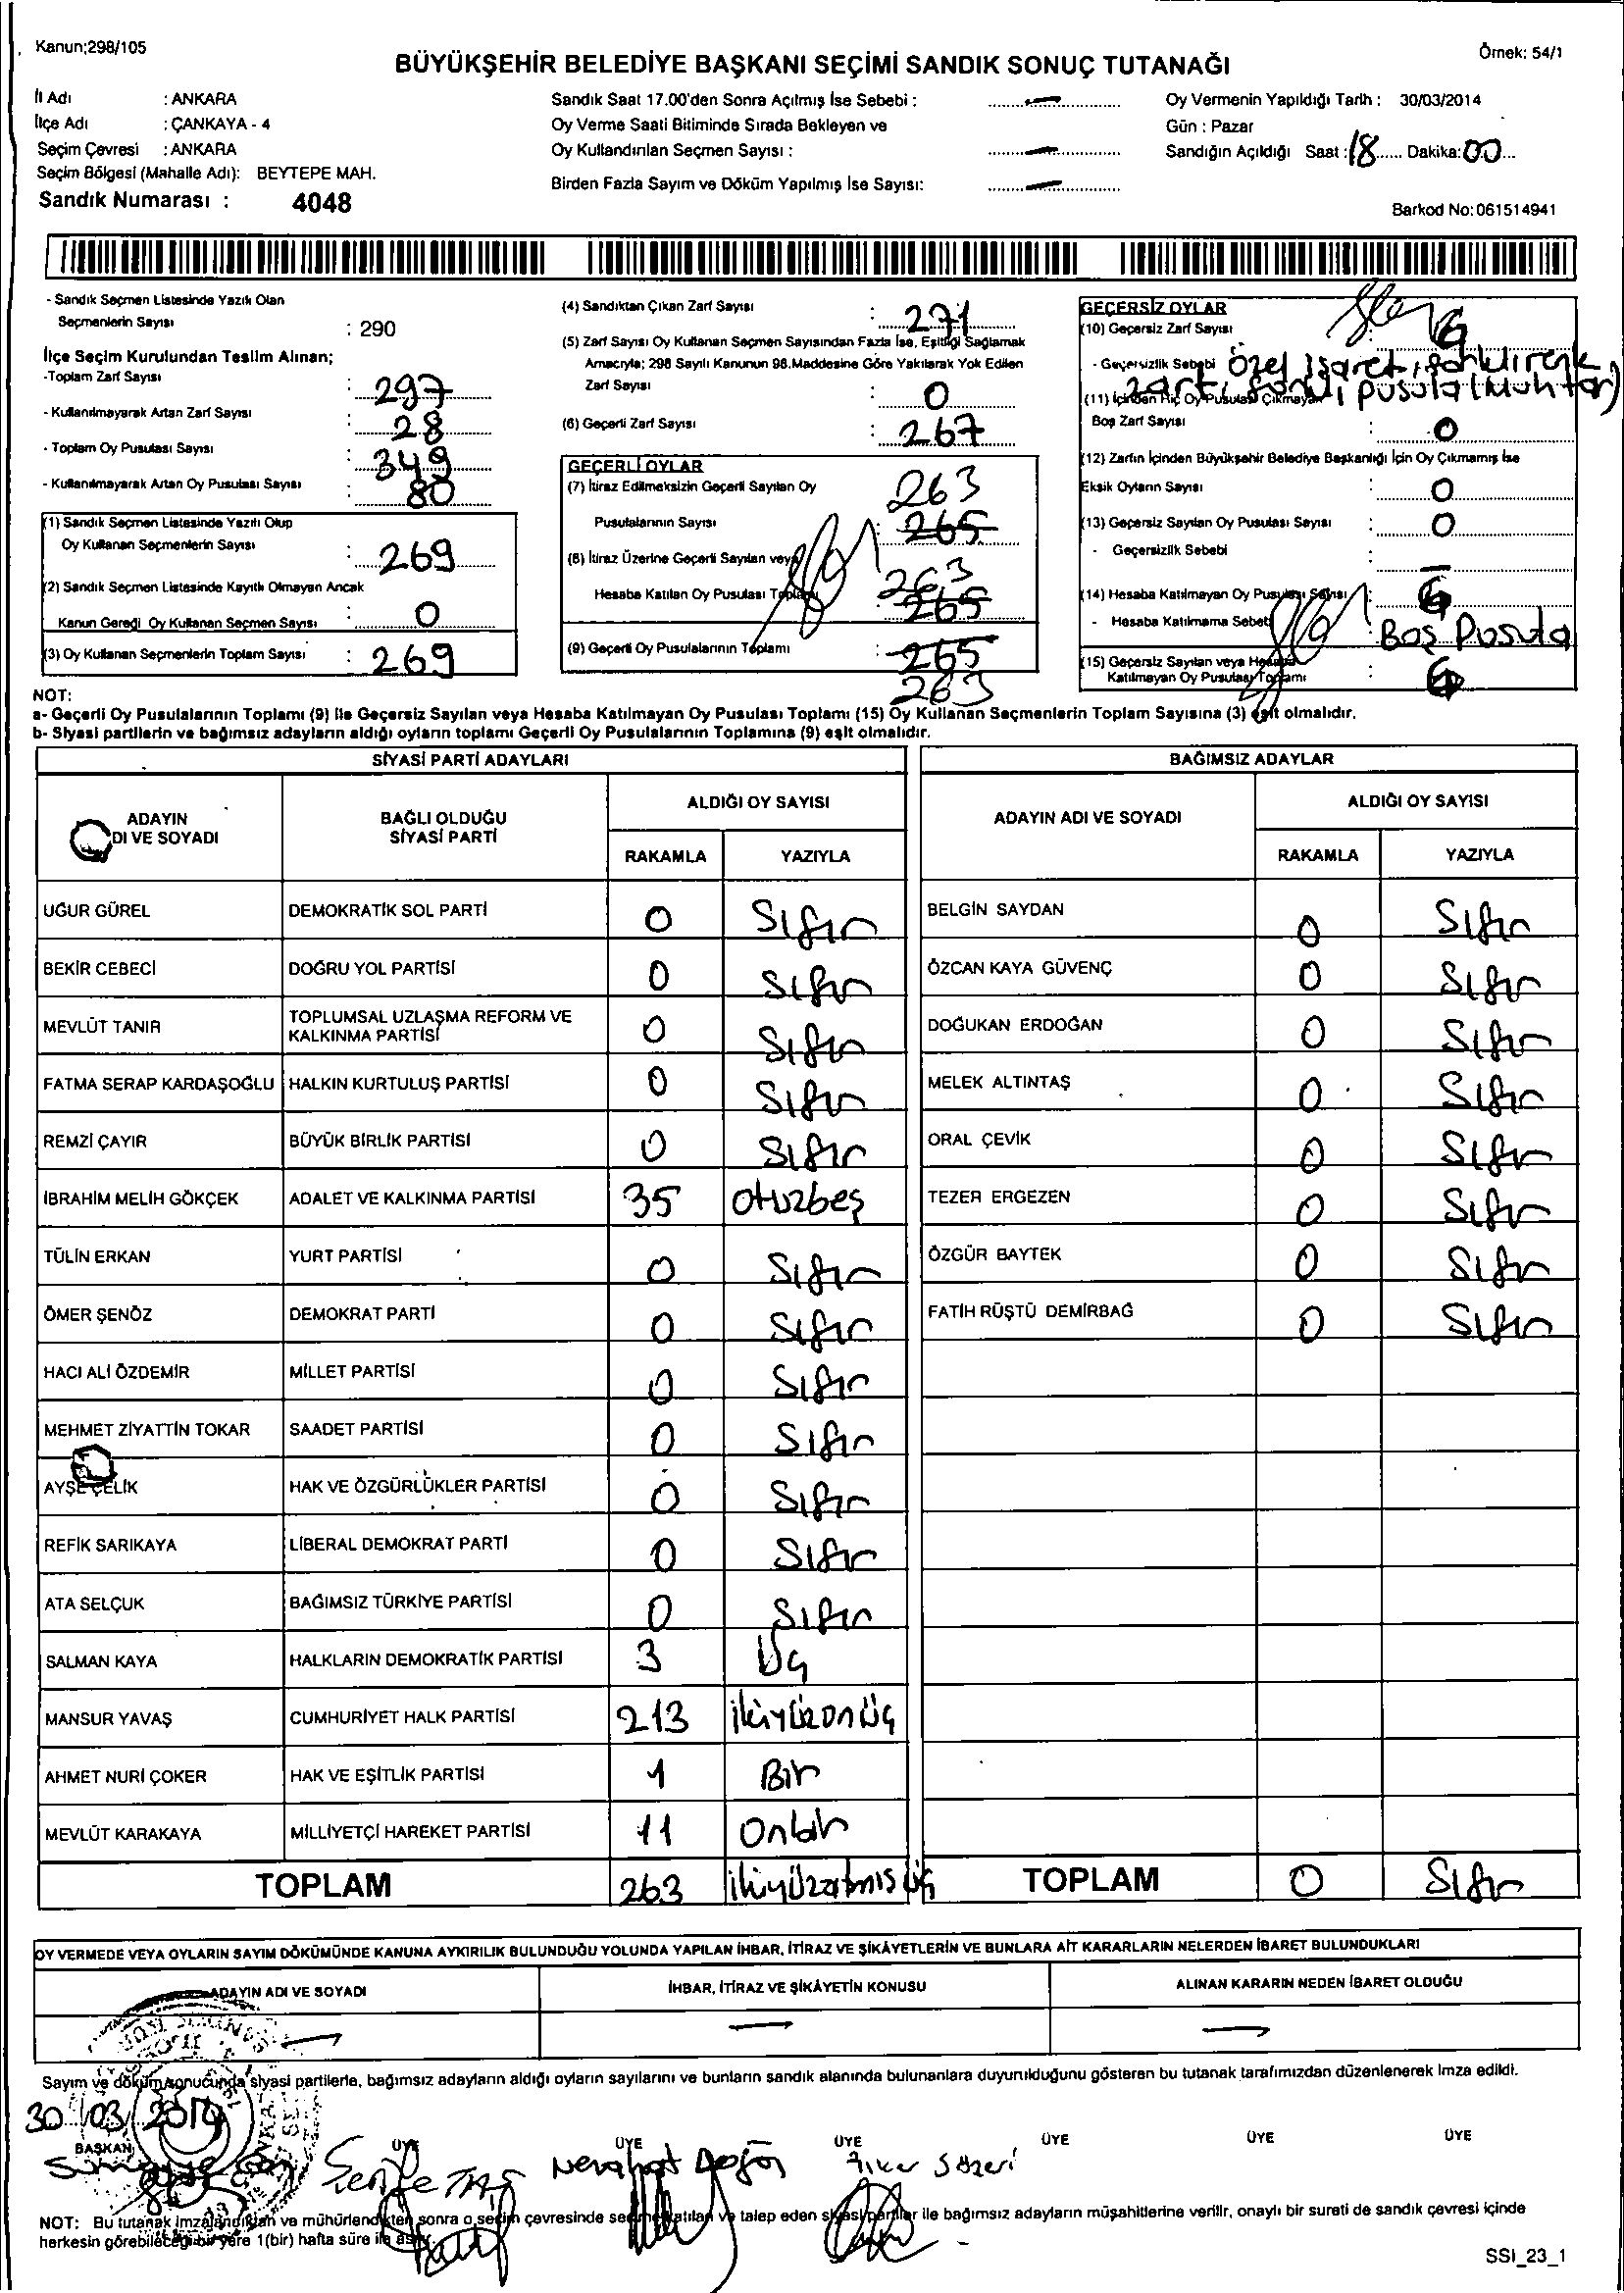 Kanun;298/105
Örnek: 54/1
BÜYÜKŞEHİR BELEDİYE BAŞKANI SEÇİMİ SANDIK SONUÇ TUTANAĞI
İl Adı : ANKARA
İlçe Adı : ÇANKAYA - 4
Seçim Çevresi : ANKARA
Seçim Bölgesi (Mahalle Adı): BEYTEPE MAH.
Sandık Numarası : 4048
Sandık Saat 17.00'den Sonra Açılmış İse Sebebi : —
Oy Verme Saati Bitiminde Sırada Bekleyen ve
Oy Kullandırılan Seçmen Sayısı : —
Birden Fazla Sayım ve Döküm Yapılmış İse Sayısı: —
Oy Vermenin Yapıldığı Tarih : 30/03/2014
Gün : Pazar
Sandığın Açıldığı Saat : 18 Dakika: 00
Barkod No: 061514941
- Sandık Seçmen Listesinde Yazılı Olan
Seçmenlerin Sayısı : 290
İlçe Seçim Kurulundan Teslim Alınan;
-Toplam Zarf Sayısı : 297
- Kullanılmayarak Artan Zarf Sayısı : 28
- Toplam Oy Pusulası Sayısı : 349
- Kullanılmayarak Artan Oy Pusulası Sayısı : 80
(1) Sandık Seçmen Listesinde Yazılı Olup
Oy Kullanan Seçmenlerin Sayısı : 269
(2) Sandık Seçmen Listesinde Kayıtlı Olmayan Ancak
Kanun Gereği Oy Kullanan Seçmen Sayısı : 0
(3) Oy Kullanan Seçmenlerin Toplam Sayısı : 269
(4) Sandıktan Çıkan Zarf Sayısı : 271
(5) Zarf Sayısı Oy Kullanan Seçmen Sayısından Fazla İse, Eşitliği Sağlamak
Amacıyla; 298 Sayılı Kanunun 98.Maddesine Göre Yakılarak Yok Edilen
Zarf Sayısı : 0
(6) Geçerli Zarf Sayısı : 267
GEÇERLİ OYLAR
(7) İtiraz Edilmeksizin Geçerli Sayılan Oy 263
Pusulalarının Sayısı : 265
(8) İtiraz Üzerine Geçerli Sayılan veya 263
Hesaba Katılan Oy Pusulası Toplamı 265
(9) Geçerli Oy Pusulalarının Toplamı : 265
263
GEÇERSİZ OYLAR
(10) Geçersiz Zarf Sayısı
- Geçersizlik Sebebi özel işaret, farklı renk
pusula (Muhtar)
(11) İçinden Hiç Oy Pusulası Çıkmayan
Boş Zarf Sayısı : 0
(12) Zarfın İçinden Büyükşehir Belediye Başkanlığı İçin Oy Çıkmamış İse
Eksik Oyların Sayısı : 0
(13) Geçersiz Sayılan Oy Pusulası Sayısı : 0
- Geçersizlik Sebebi : —
(14) Hesaba Katılmayan Oy Pusulası Sayısı : 6
- Hesaba Katılmama Sebebi : Boş Pusula
(15) Geçersiz Sayılan veya Hesaba
Katılmayan Oy Pusulası Toplamı : 6
NOT:
a- Geçerli Oy Pusulalarının Toplamı (9) İle Geçersiz Sayılan veya Hesaba Katılmayan Oy Pusulası Toplamı (15) Oy Kullanan Seçmenlerin Toplam Sayısına (3) eşit olmalıdır.
b- Siyasi partilerin ve bağımsız adayların aldığı oyların toplamı Geçerli Oy Pusulalarının Toplamına (9) eşit olmalıdır.
SİYASİ PARTİ ADAYLARI
ADAYIN
DI VE SOYADI
BAĞLI OLDUĞU
SİYASİ PARTİ
ALDIĞI OY SAYISI
RAKAMLA YAZIYLA
UĞUR GÜREL DEMOKRATİK SOL PARTİ 0 Sıfır
BEKİR CEBECİ DOĞRU YOL PARTİSİ 0 Sıfır
MEVLÜT TANIR TOPLUMSAL UZLAŞMA REFORM VE
KALKINMA PARTİSİ 0 Sıfır
FATMA SERAP KARDAŞOĞLU HALKIN KURTULUŞ PARTİSİ 0 Sıfır
REMZİ ÇAYIR BÜYÜK BİRLİK PARTİSİ 0 Sıfır
İBRAHİM MELİH GÖKÇEK ADALET VE KALKINMA PARTİSİ 35 otuzbeş
TÜLİN ERKAN YURT PARTİSİ 0 Sıfır
ÖMER ŞENÖZ DEMOKRAT PARTİ 0 Sıfır
HACI ALİ ÖZDEMİR MİLLET PARTİSİ 0 Sıfır
MEHMET ZİYATTİN TOKAR SAADET PARTİSİ 0 Sıfır
AYŞE ÇELİK HAK VE ÖZGÜRLÜKLER PARTİSİ 0 Sıfır
REFİK SARIKAYA LİBERAL DEMOKRAT PARTİ 0 Sıfır
ATA SELÇUK BAĞIMSIZ TÜRKİYE PARTİSİ 0 Sıfır
SALMAN KAYA HALKLARIN DEMOKRATİK PARTİSİ 3 Üç
MANSUR YAVAŞ CUMHURİYET HALK PARTİSİ 213 ikiyüzonüç
AHMET NURİ ÇOKER HAK VE EŞİTLİK PARTİSİ 1 Bir
MEVLÜT KARAKAYA MİLLİYETÇİ HAREKET PARTİSİ 11 Onbir
TOPLAM 263 ikiyüzatmış üç
BAĞIMSIZ ADAYLAR
ADAYIN ADI VE SOYADI
ALDIĞI OY SAYISI
RAKAMLA YAZIYLA
BELGİN SAYDAN 0 Sıfır
ÖZCAN KAYA GÜVENÇ 0 Sıfır
DOĞUKAN ERDOĞAN 0 Sıfır
MELEK ALTINTAŞ 0 Sıfır
ORAL ÇEVİK 0 Sıfır
TEZER ERGEZEN 0 Sıfır
ÖZGÜR BAYTEK 0 Sıfır
FATİH RÜŞTÜ DEMİRBAĞ 0 Sıfır
TOPLAM 0 Sıfır
OY VERMEDE VEYA OYLARIN SAYIM DÖKÜMÜNDE KANUNA AYKIRILIK BULUNDUĞU YOLUNDA YAPILAN İHBAR, İTİRAZ VE ŞİKÂYETLERİN VE BUNLARA AİT KARARLARIN NELERDEN İBARET BULUNDUKLARI
ADAYIN ADI VE SOYADI İHBAR, İTİRAZ VE ŞİKÂYETİN KONUSU ALINAN KARARIN NEDEN İBARET OLDUĞU
— — —
Sayım ve döküm sonucunda siyasi partilerle, bağımsız adayların aldığı oyların sayılarını ve bunların sandık alanında bulunanlara duyurulduğunu gösteren bu tutanak tarafımızdan düzenlenerek imza edildi.
30/03/2014
BAŞKAN ÜYE ÜYE ÜYE ÜYE ÜYE ÜYE
Şerife TAŞ Nevahat Doğan İlker Sözeri
NOT: Bu tutanak imzalandıktan ve mühürlendikten sonra o seçim çevresinde seçime katılan ve talep eden siyasi partiler ile bağımsız adayların müşahitlerine verilir, onaylı bir sureti de sandık çevresi içinde
herkesin görebileceği bir yere 1(bir) hafta süre ile asılır.
SSI_23_1